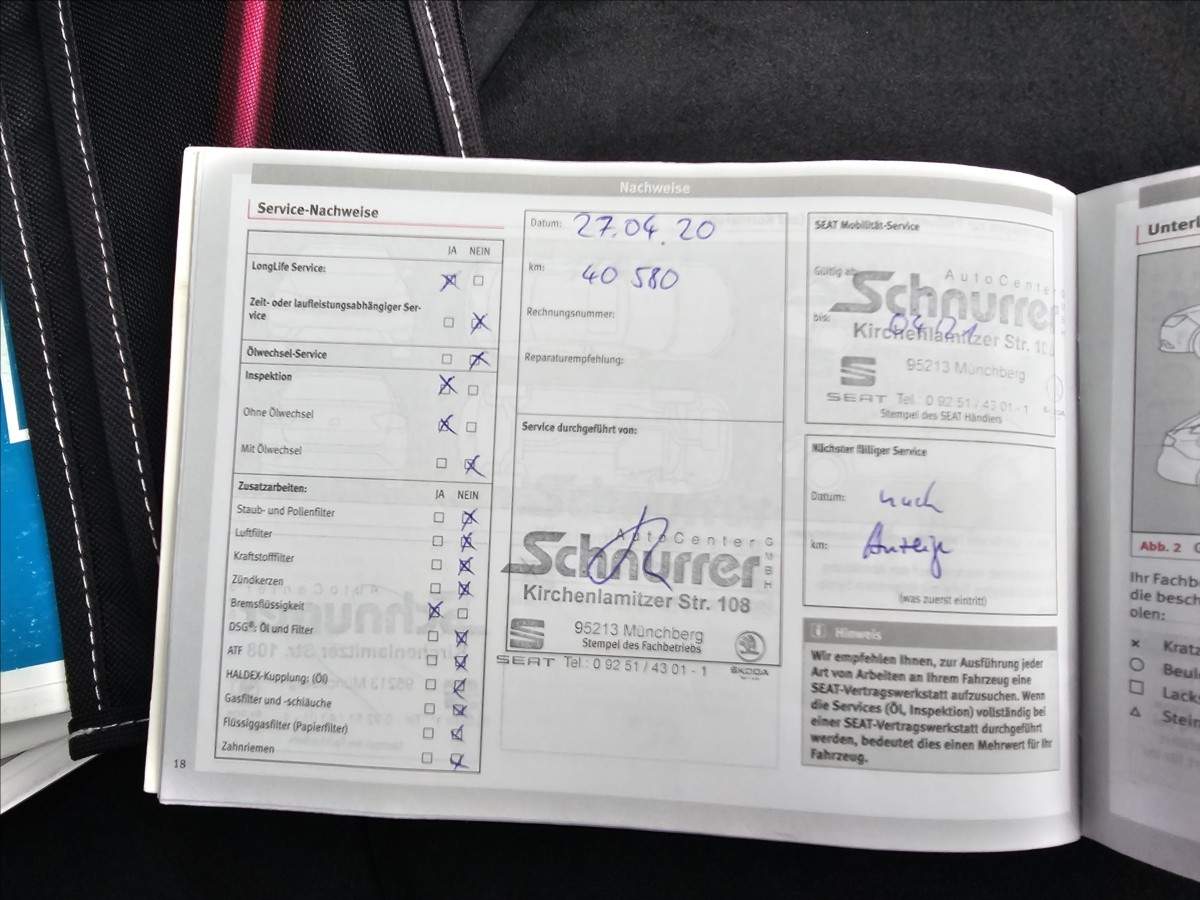 Nachweise
Service-Nachweise
JA NEIN
LongLife Service:
Zeit- oder laufleistungsabhängiger Ser-
vice
Ölwechsel-Service
Inspektion
Ohne Ölwechsel
Mit Ölwechsel
Zusatzarbeiten:
JA NEIN
Staub- und Pollenfilter
Luftfilter
Kraftstofffilter
Zündkerzen
Bremsflüssigkeit
DSG®: Öl und Filter
ATF
HALDEX-Kupplung: (Öl)
Gasfilter und -schläuche
Flüssiggasfilter (Papierfilter)
Zahnriemen
18
Datum: 27.04.20
km: 40 580
Rechnungsnummer:
Reparaturempfehlung:
Service durchgeführt von:
AutoCenter
Schnurrer
GMBH
Kirchenlamitzer Str. 108
95213 Münchberg
Stempel des Fachbetriebs
SEAT Tel.: 0 92 51 / 43 01 - 1 ŠKODA
SEAT Mobilität-Service
Gültig ab:
AutoCenter
Schnurrer
bis: 04/21
Kirchenlamitzer Str. 10
95213 Münchberg
SEAT Tel.: 0 92 51 / 43 01 - 1
Stempel des SEAT Händlers
Nächster fälliger Service
Datum: nach
km: Anzeige
(was zuerst eintritt)
Hinweis
Wir empfehlen Ihnen, zur Ausführung jeder
Art von Arbeiten an Ihrem Fahrzeug eine
SEAT-Vertragswerkstatt aufzusuchen. Wenn
die Services (Öl, Inspektion) vollständig bei
einer SEAT-Vertragswerkstatt durchgeführt
werden, bedeutet dies einen Mehrwert für Ihr
Fahrzeug.
Unterl
Abb. 2
Ihr Fachb
die besch
olen:
Kratz
Beul
Lack
Stein